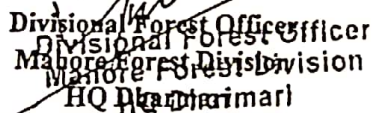 Divisional Forest Officer
Divisional Forest Officer
Mahore Forest Division
Mahore Forest Division
HQ Dharmari